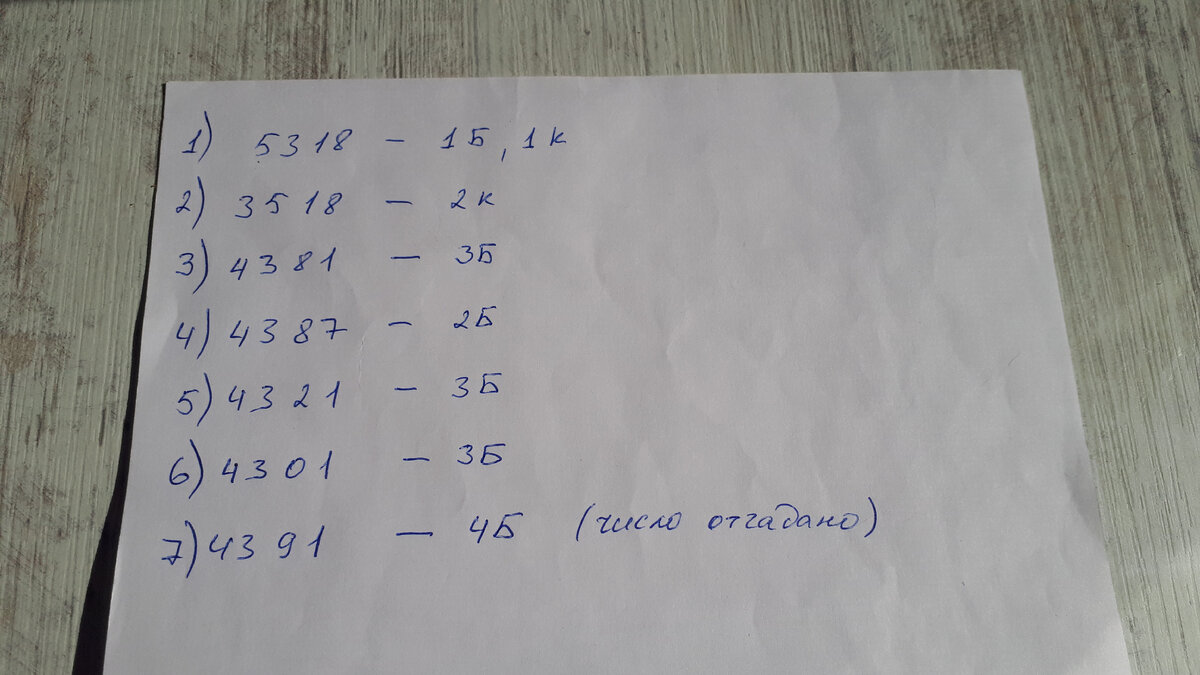 1) 5318 – 1Б, 1к
2) 3518 – 2к
3) 4381 – 3Б
4) 4387 – 2Б
5) 4321 – 3Б
6) 4301 – 3Б
7) 4391 – 4Б (число отгадано)